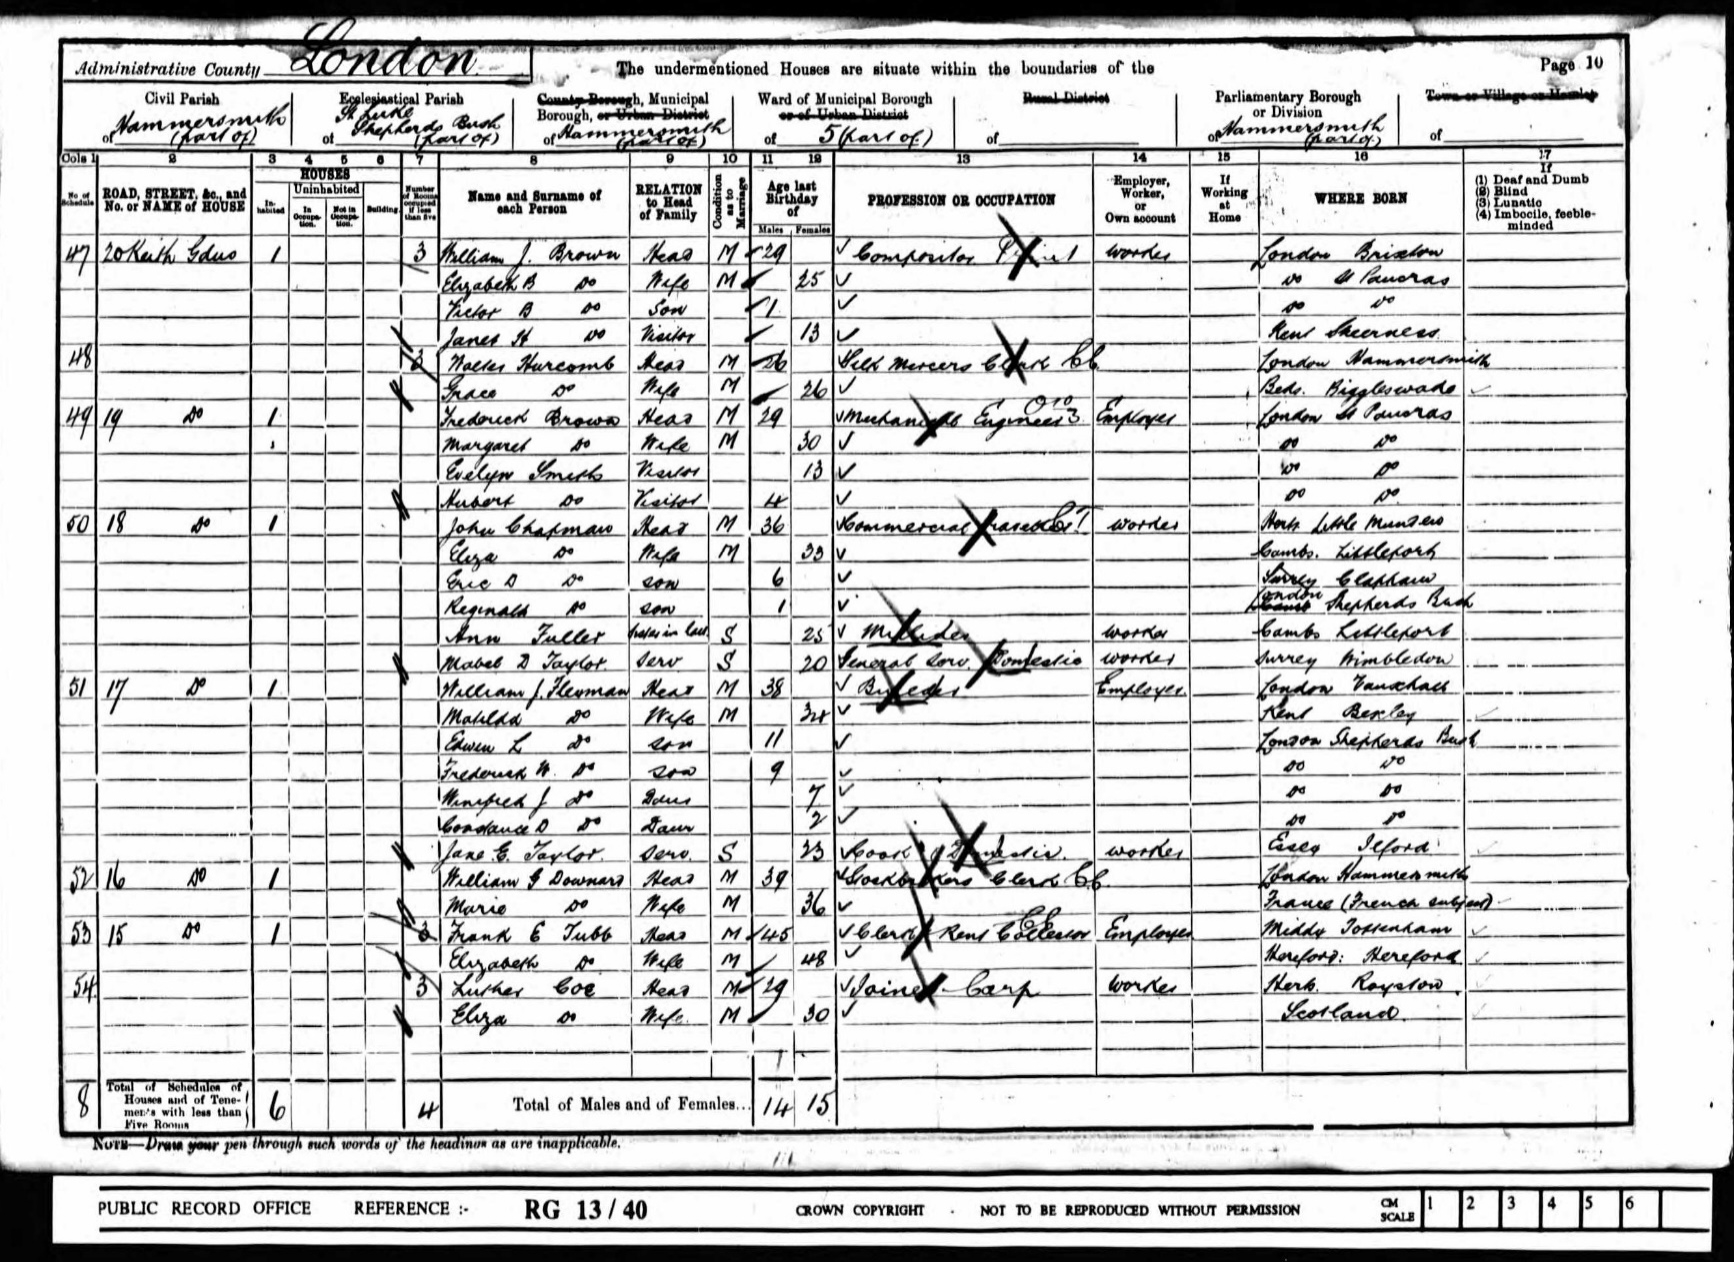 Administrative County London
The undermentioned Houses are situate within the boundaries of the
Page 10
Civil Parish of Hammersmith (part of)
Ecclesiastical Parish of St Luke Shepherds Bush (part of)
County Borough, Municipal Borough, or Urban District of Hammersmith (part of)
Ward of Municipal Borough or of Urban District of 5 (part of)
Rural District of
Parliamentary Borough or Division of Hammersmith (part of)
Town or Village or Hamlet of
Cols 1 2 3 4 5 6 7 8 9 10 11 12 13 14 15 16 17
No. of Schedule
ROAD, STREET, &c., and No. or NAME of HOUSE
HOUSES
Inhabited
Uninhabited
In Occupation.
Not in Occupation.
Building.
Number of Rooms occupied if less than five
Name and Surname of each Person
RELATION to Head of Family
Condition as to Marriage
Age last Birthday of
Males Females
PROFESSION OR OCCUPATION
Employer, Worker, or Own account
If Working at Home
WHERE BORN
If (1) Deaf and Dumb (2) Blind (3) Lunatic (4) Imbecile, feeble-minded
47 20 Keith Gdns 1 3 William J. Brown Head M 29 Compositor Print worker London Brixton
Elizabeth B Do Wife M 25 Do St Pancras
Victor B Do Son 1 Do Do
Janet H Do Visitor 13 Kent Sheerness
48 3 Walter Hurcomb Head M 26 Silk Mercers Clerk CC London Hammersmith
Grace Do Wife M 26 Beds. Biggleswade
49 19 Do 1 Frederick Brown Head M 29 Mechanical Engineer Employer London St Pancras
Margaret Do Wife M 30 Do Do
Evelyn Smith Visitor 13 Do Do
Hubert Do Visitor 4 Do Do
50 18 Do 1 John Chapman Head M 36 Commercial Traveller worker Herts Little Munden
Eliza Do Wife M 33 Cambs. Littleport
Eric D Do son 6 Surrey Clapham
Reginald Do son 1 London Shepherds Bush
Ann Fuller Sister in law S 25 worker Cambs Littleport
Mabel D Taylor Serv S 20 General Serv. Domestic worker Surrey Wimbledon
51 17 Do 1 William J. Flexman Head M 38 Builder Employer London Vauxhall
Matilda Do Wife M 34 Kent Bexley
Edwin L Do son 11 London Shepherds Bush
Frederick W. Do son 9 Do Do
Winifred J Do Daur 7 Do Do
Constance D Do Daur 2 Do Do
Jane E. Taylor Serv. S 23 Cook Domestic. worker Essex Ilford
52 16 Do 1 William G Downard Head M 39 Stockbrokers Clerk CC London Hammersmith
Marie Do Wife M 36 France (French subject)
53 15 Do 1 3 Frank E Tubb Head M 45 Clerk Rent Collector Employer Middx Tottenham
Elizabeth Do Wife M 48 Hereford: Hereford
54 3 Luther Coe Head M 29 Joiner Carp worker Herts. Royston
Eliza Do Wife M 30 Scotland
8 Total of Schedules of Houses and of Tenements with less than Five Rooms 6 4 Total of Males and of Females... 14 15
NOTE—Draw your pen through such words of the headings as are inapplicable.
PUBLIC RECORD OFFICE REFERENCE :- RG 13/40 CROWN COPYRIGHT - NOT TO BE REPRODUCED WITHOUT PERMISSION CM SCALE 1 2 3 4 5 6